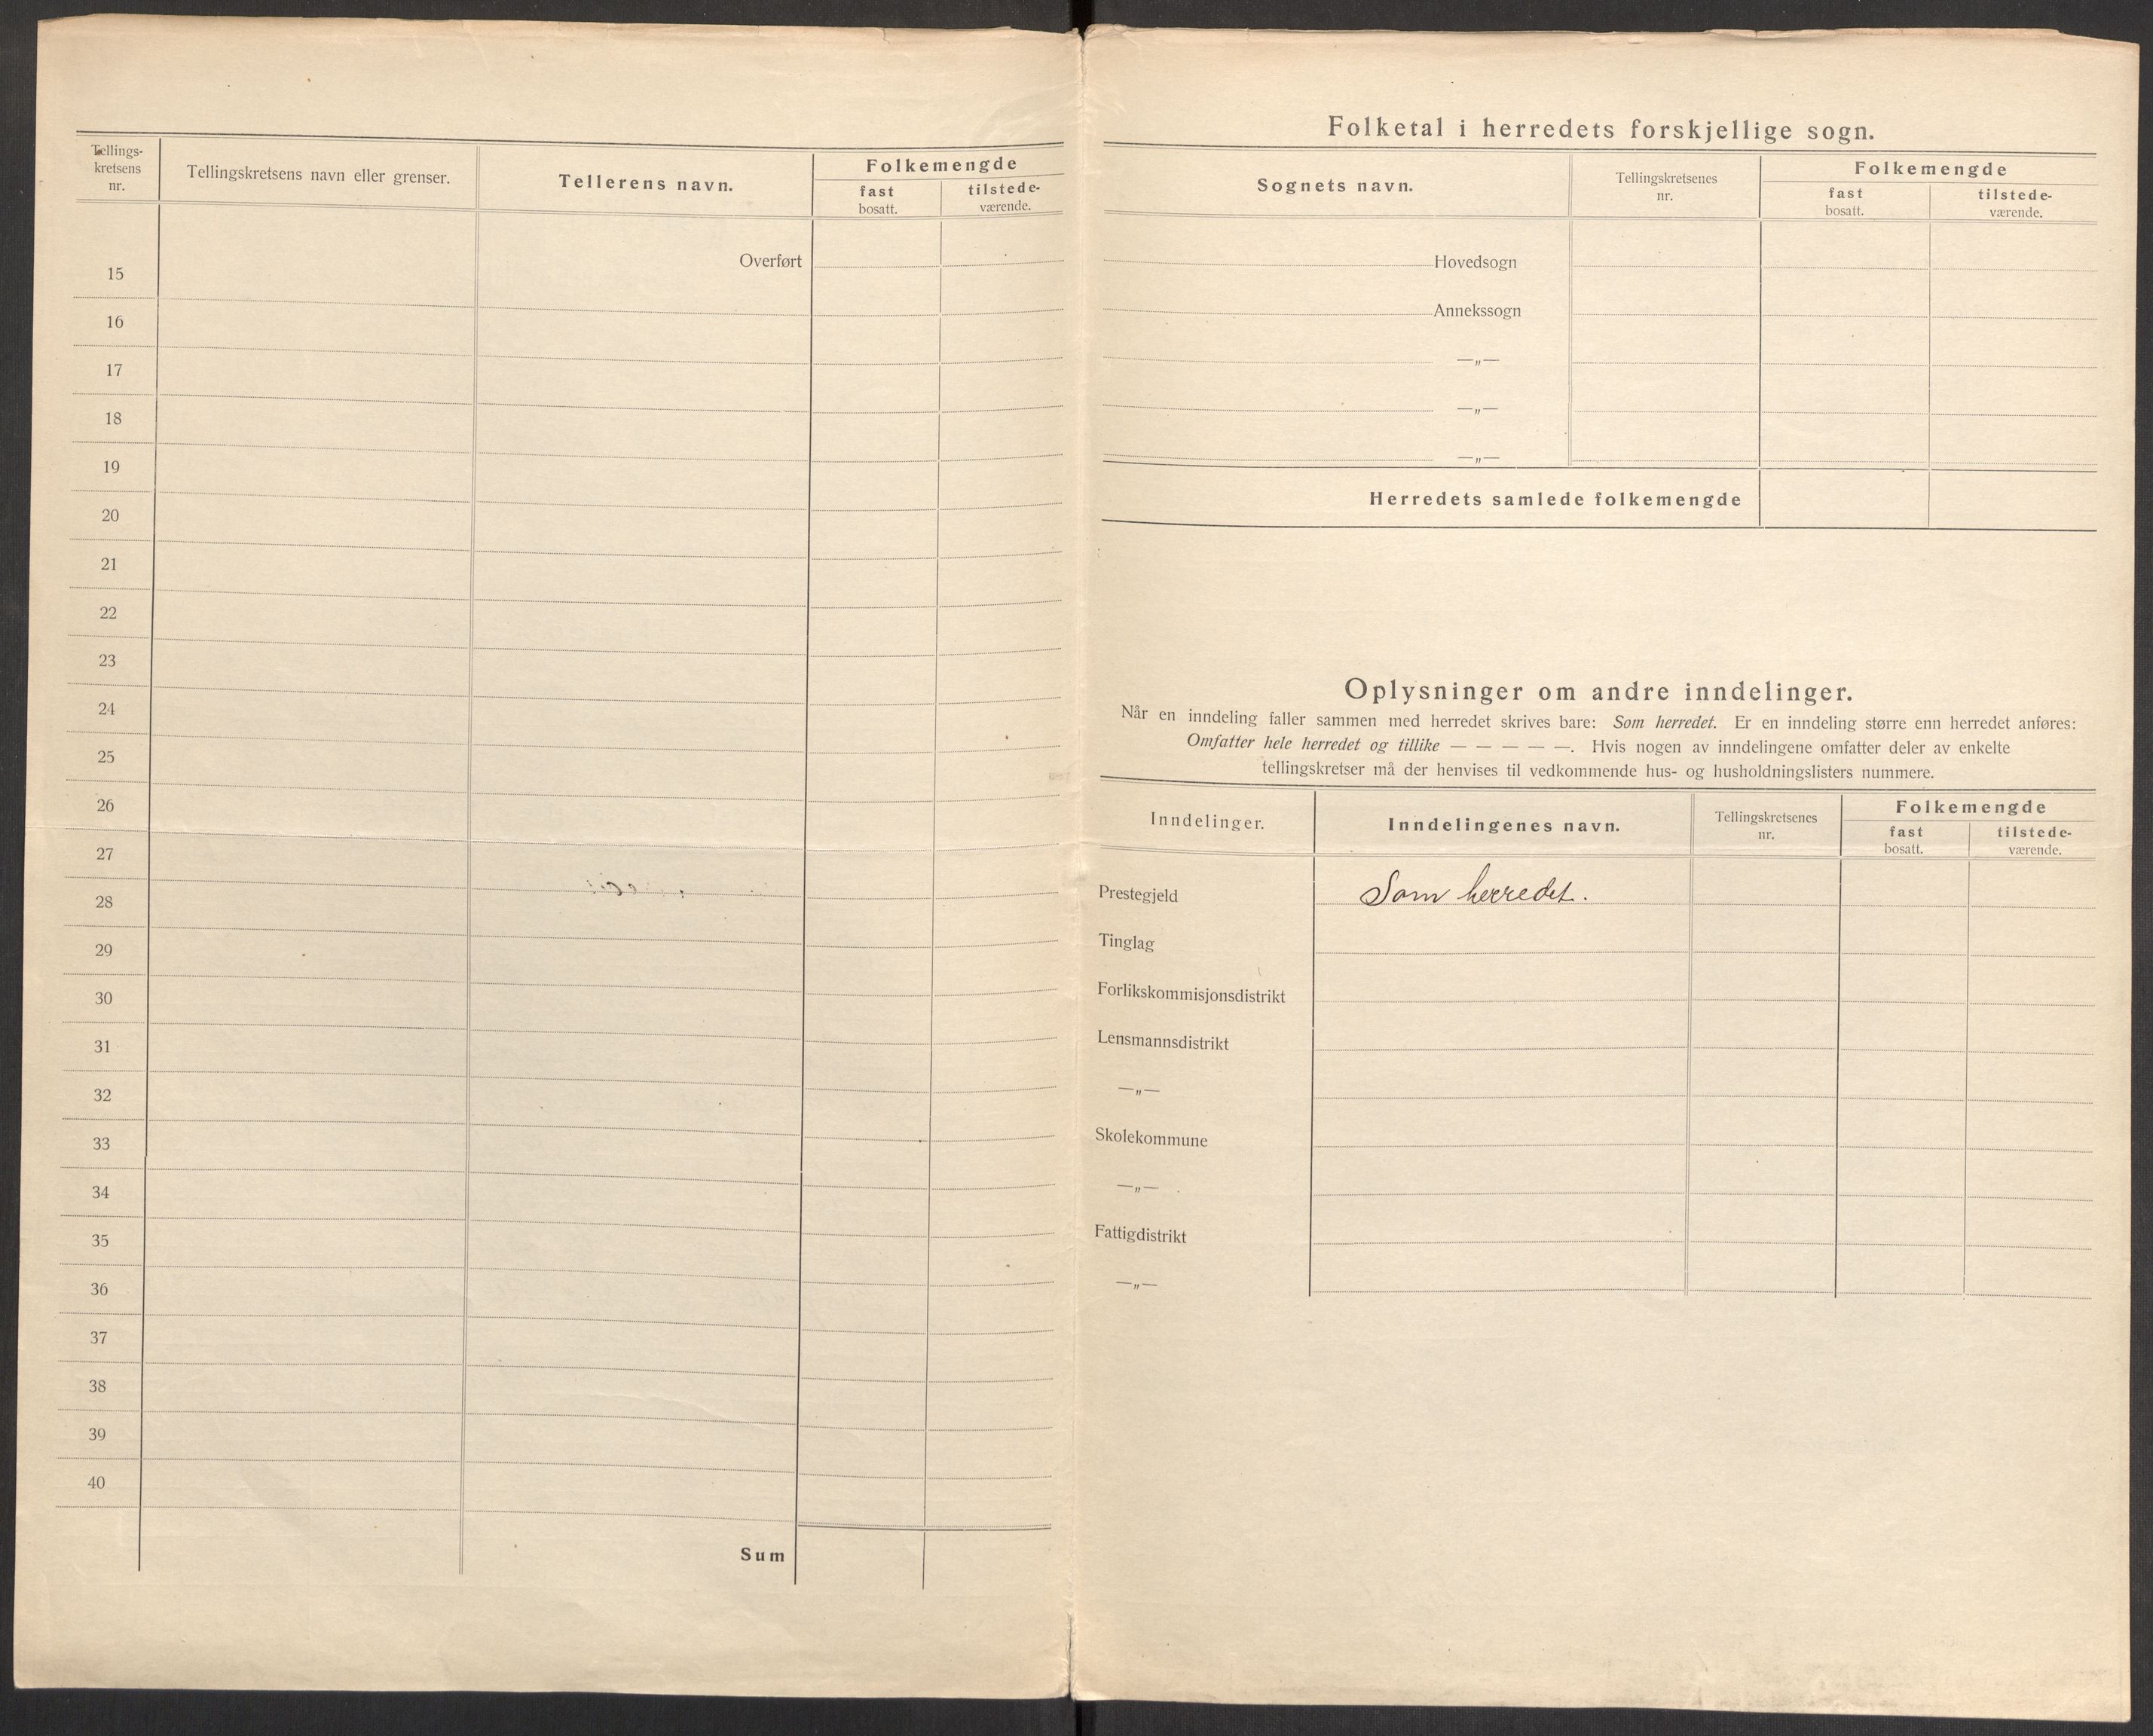 Tellings-
kretsens
nr.
Tellingskretsens navn eller grenser.
Tellerens navn.
Folkemengde
fast
bosatt.
tilstede-
værende.
Overført
15
16
17
18
19
20
21
22
23
24
25
26
27
28
29
30
31
32
33
34
35
36
37
38
39
40
Sum
Folketal i herredets forskjellige sogn.
Sognets navn.
Tellingskretsenes
nr.
Folkemengde
fast
bosatt.
tilstede-
værende.
Hovedsogn
Annekssogn
—„—
—„—
—„—
Herredets samlede folkemengde
Oplysninger om andre inndelinger.
Når en inndeling faller sammen med herredet skrives bare: Som herredet. Er en inndeling større enn herredet anføres:
Omfatter hele herredet og tillike — — — — —. Hvis nogen av inndelingene omfatter deler av enkelte
tellingskretser må der henvises til vedkommende hus- og husholdningslisters nummere.
Inndelinger.
Inndelingenes navn.
Tellingskretsenes
nr.
Folkemengde
fast
bosatt.
tilstede-
værende.
Prestegjeld Som herredet.
Tinglag
Forlikskommisjonsdistrikt
Lensmannsdistrikt
—„—
Skolekommune
—„—
Fattigdistrikt
—„—